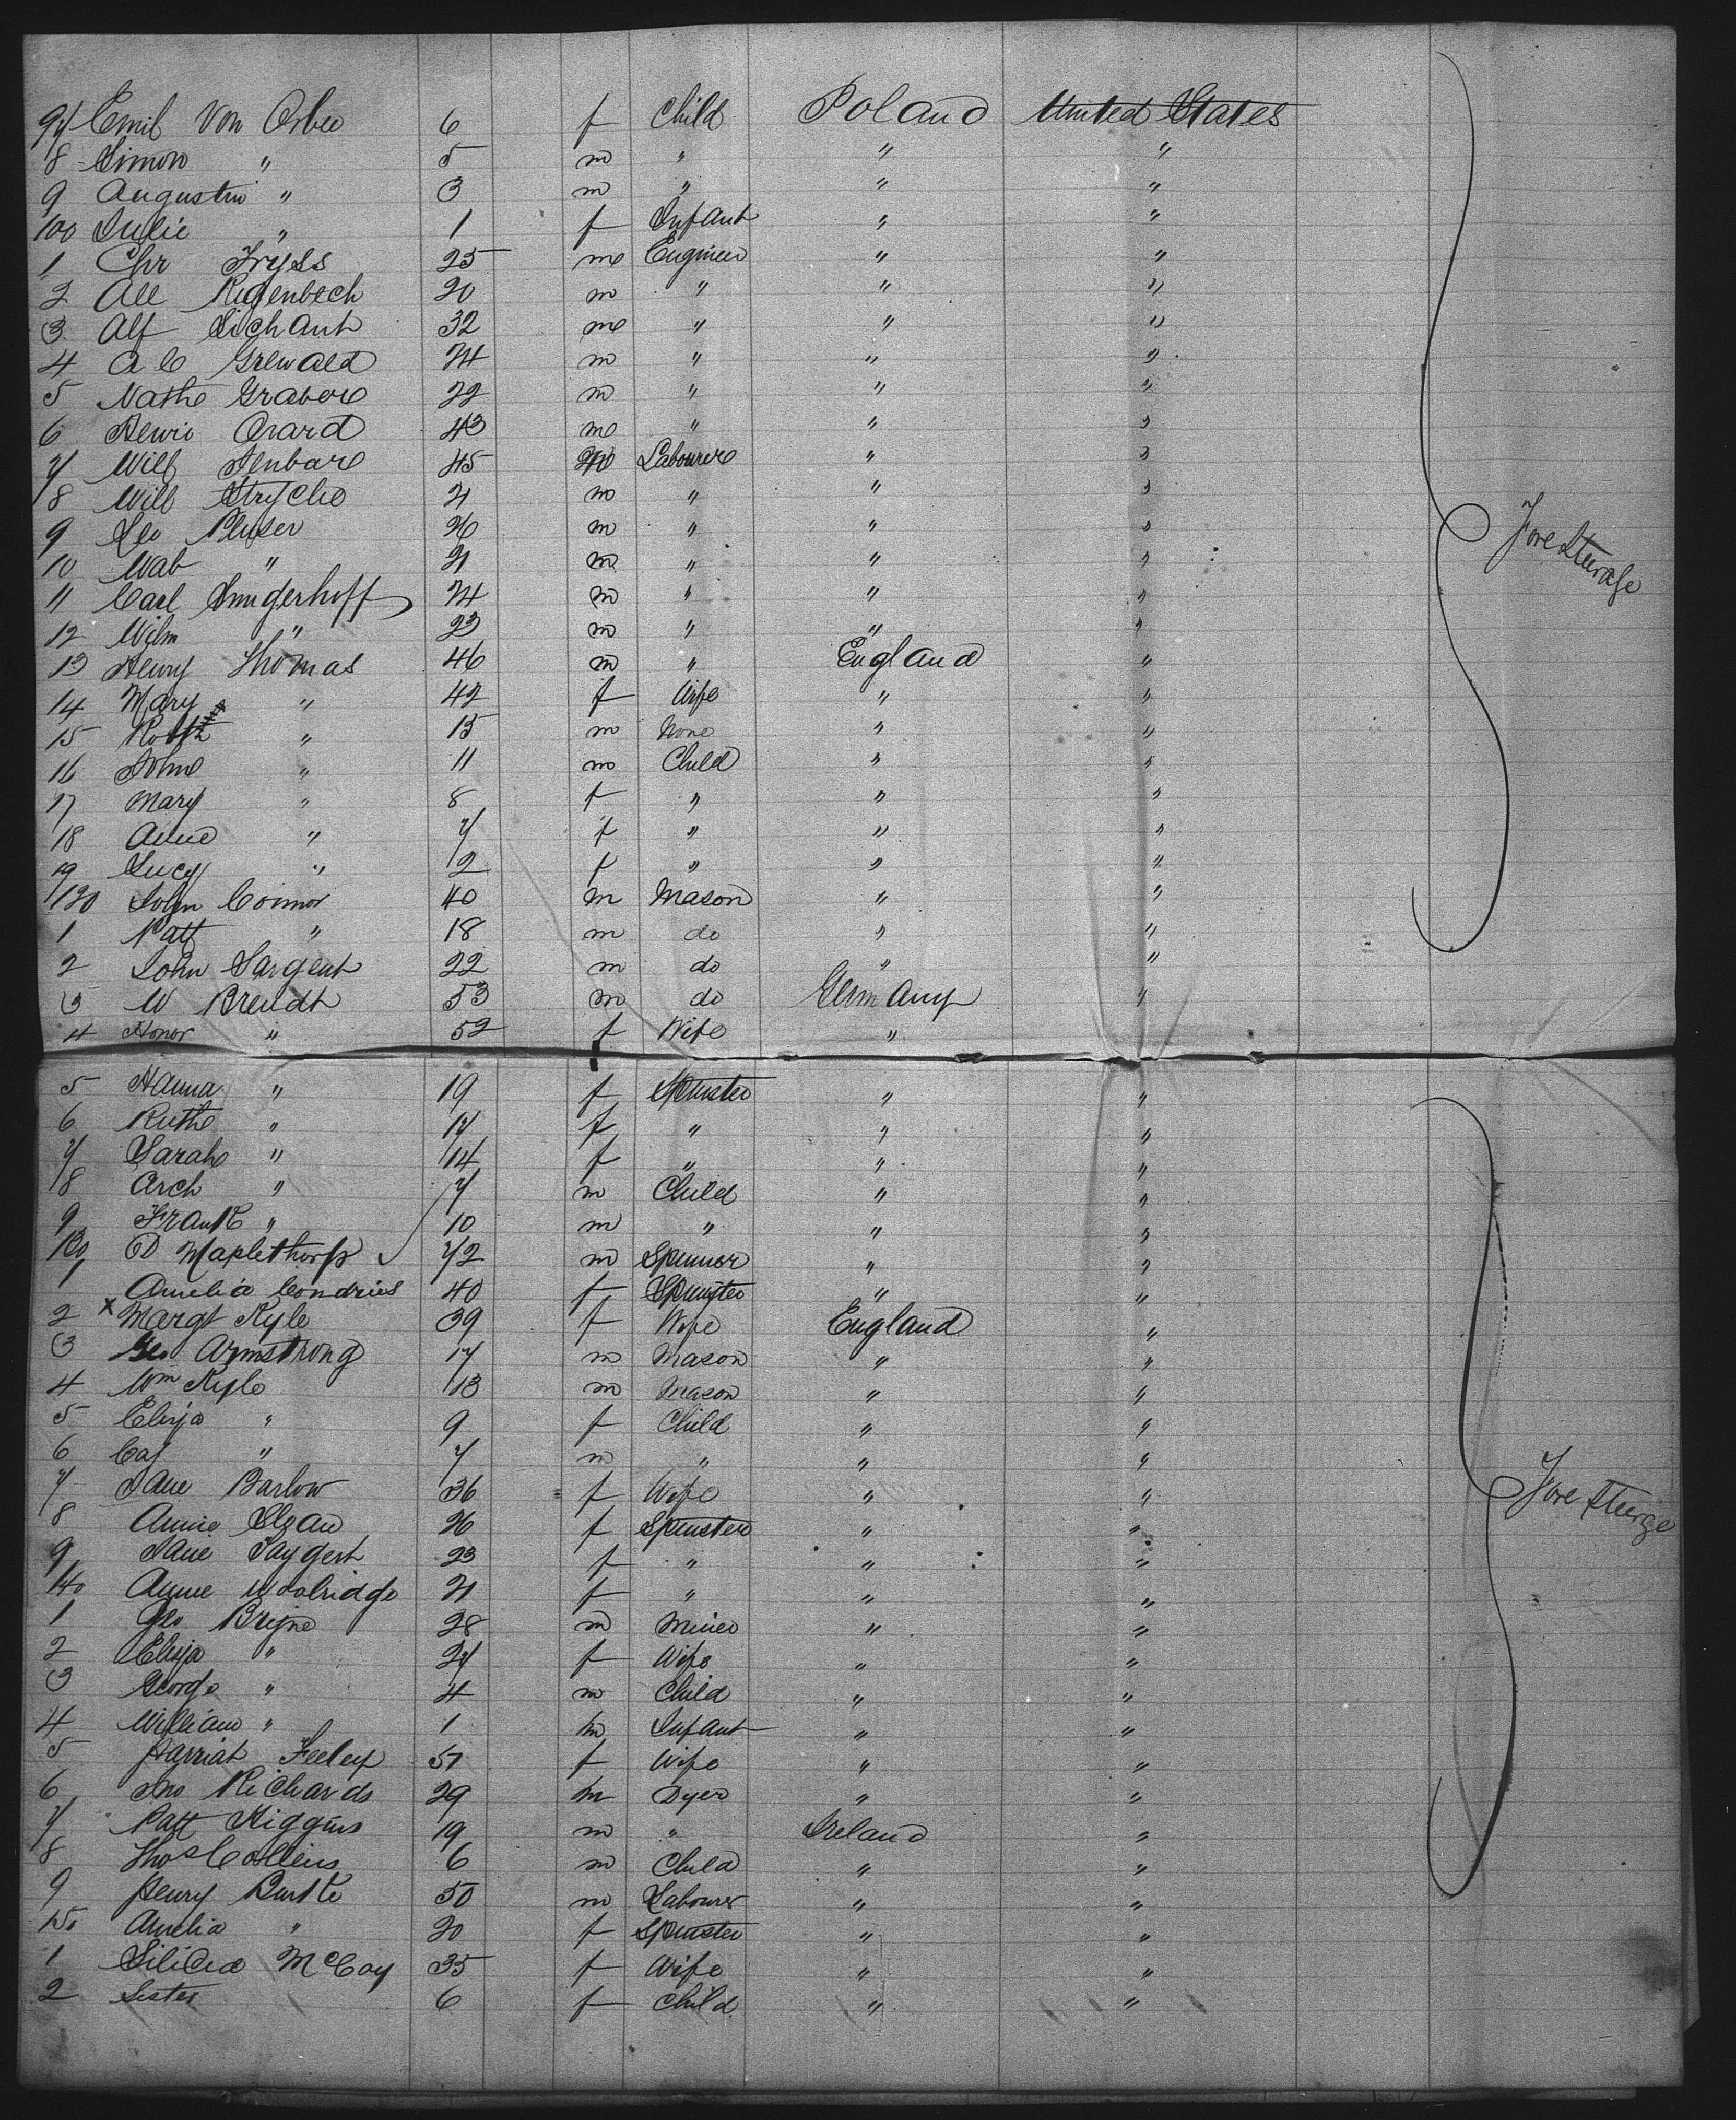 97 Emil Von Osbee 6 f Child Poland United States
8 Simon " 5 m " " "
9 Augustin " 3 m " " "
100 Julie " 1 f Infant " "
1 Chr Fryss 25 m Engineer " "
2 All Rigenbech 20 m " " "
3 Alf Lichant 32 m " " "
4 A C Grewald 24 m " " "
5 Nath Grabow 22 m " " "
6 Henri Orard 43 m " " "
7 Will 45 m Labourer " "
8 Will 21 m " " "
9 Leo Pluser 26 m " " "
10 Wab " 21 m " " "
11 Carl Lungerhoff 24 m " " "
12 Wilm " 23 m " " "
13 Henry Thomas 46 m " England "
14 Mary " 42 f Wife " "
15 Robt " 15 m None " "
16 John " 11 m Child " "
17 Mary " 8 f " " "
18 Anne " 7 f " " "
19 Lucy " 2 f " " "
120 John Connor 40 m Mason " "
1 Patt " 18 m do " "
2 John Sargent 22 m do " "
3 W Brendt 53 m do Germany "
4 Honor " 52 f Wife "
5 Hanna " 19 f Spinster " "
6 Ruth " 17 f " " "
7 Sarah " 14 f " " "
8 Arch " 7 m Child " "
9 Frank " 10 m " " "
130 D Maplethorp 42 m Spinner " "
1 Amelia Condries 40 f Spinster " "
2 x Margt Kyle 39 f Wife England "
3 Geo Armstrong 17 m Mason " "
4 Wm Kyle 13 m Mason " "
5 Eliza " 9 f Child " "
6 " 7 m " " "
7 Jane Barlow 36 f Wife " "
8 Annie 26 f Spinster " "
9 Jane Taggert 23 f " " "
140 Annie Woolridge 21 f " " "
1 Geo Bryne 28 m Miner " "
2 Eliza " 27 f Wife " "
3 George " 4 m Child " "
4 William " 1 m Infant " "
5 Harriat Feeley 51 f Wife " "
6 Jno Richards 29 m Dyer " "
7 Patt Higgins 19 m " Ireland "
8 Thos Collins 6 m Child " "
9 Henry Burke 50 m Labourer " "
150 Amelia " 20 f Spinster " "
1 McCoy 35 f Wife " "
2 Sister 6 f Child " "
Fore Steerage
Fore Steerge